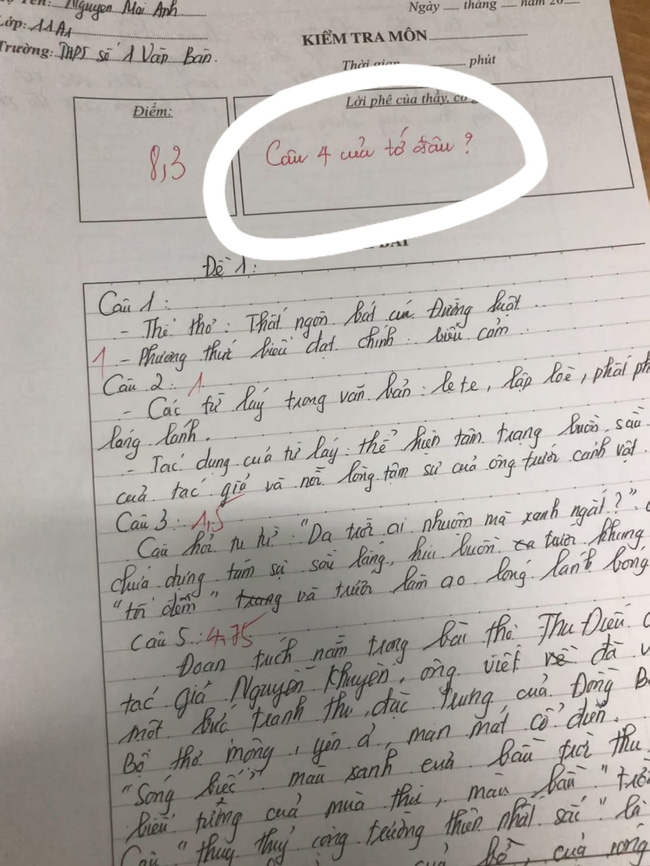 Tên: Nguyễn Mai Anh
Lớp: 11A1
Trường: THPT số 1 Văn Bàn.
Ngày __ tháng __ năm 20
KIỂM TRA MÔN
Thời gian phút
Điểm:
Lời phê của thầy, cô
8,3
Câu 4 của tớ đâu ?
BÀI
Đề 1:
Câu 1:
- Thể thơ: Thất ngôn bát cú Đường luật
1 - Phương thức biểu đạt chính: biểu cảm
Câu 2: 1
- Các từ láy trong văn bản: le te, lập loè, phất ph
lóng lánh.
- Tác dụng của từ láy: thể hiện tâm trạng buồn, sầu
của tác giả và nỗi lòng tâm sự của ông trước cảnh vật.
Câu 3: 1,5
Câu hỏi tu từ: "Da trời ai nhuộm mà xanh ngắt?".
chứa đựng tâm sự sâu lắng, hiu buồn trước khung
"tối đêm" trong và trước làn ao lóng lánh bóng
Câu 5: 4,75
Đoạn trích nằm trong bài thơ Thu Điếu
tác giả Nguyễn Khuyến, ông viết về đã v
một bức tranh thu đặc trưng của Đồng B
Bộ thơ mộng, yên ả, man mát cổ điển.
"Sóng biếc" màu xanh của bầu trời thu
biểu tượng của mùa thu, màu bầu "trờ
Câu "thuỷ cộng trường thiên nhất sắc" là